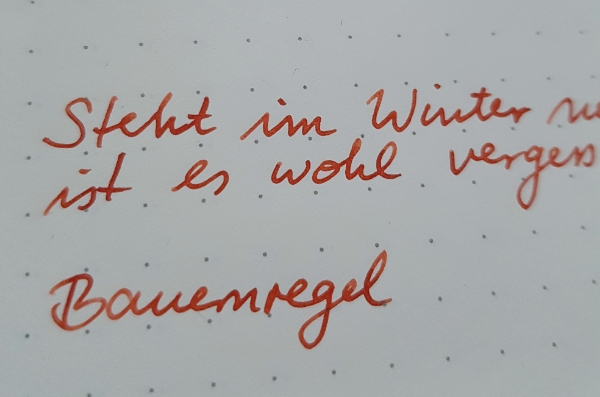 Steht im Winter
ist es wohl
Bauernregel